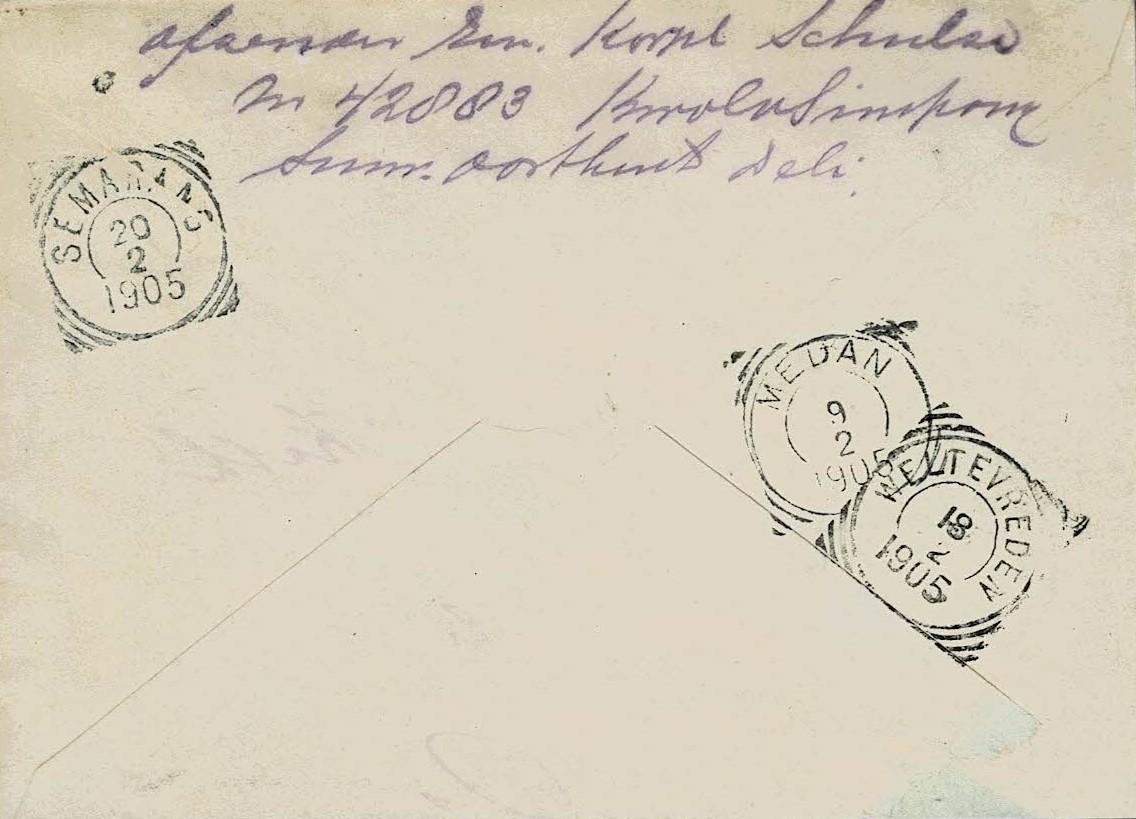 afzender Eur. Korpl Schulze
Nr 42883 KwalaSimpang
Sum. oostkust Deli.
SEMARANG
20
2
1905
MEDAN
9
2
1905
WELTEVREDEN
18
2
1905